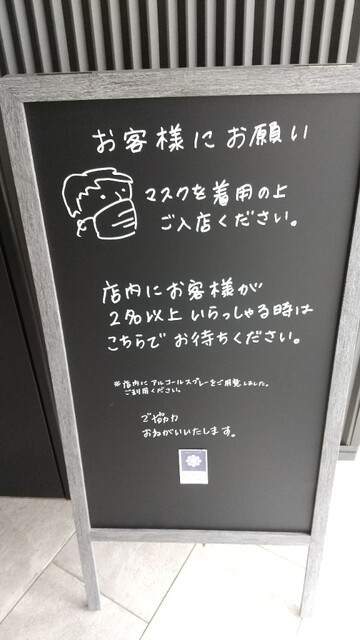 お客様にお願い
マスクを着用の上
ご入店ください。
店内にお客様が
2名以上いらっしゃる時は
こちらでお待ちください。
※店内にアルコールスプレーをご用意しました。
ご利用ください。
ご協力
おねがいいたします。